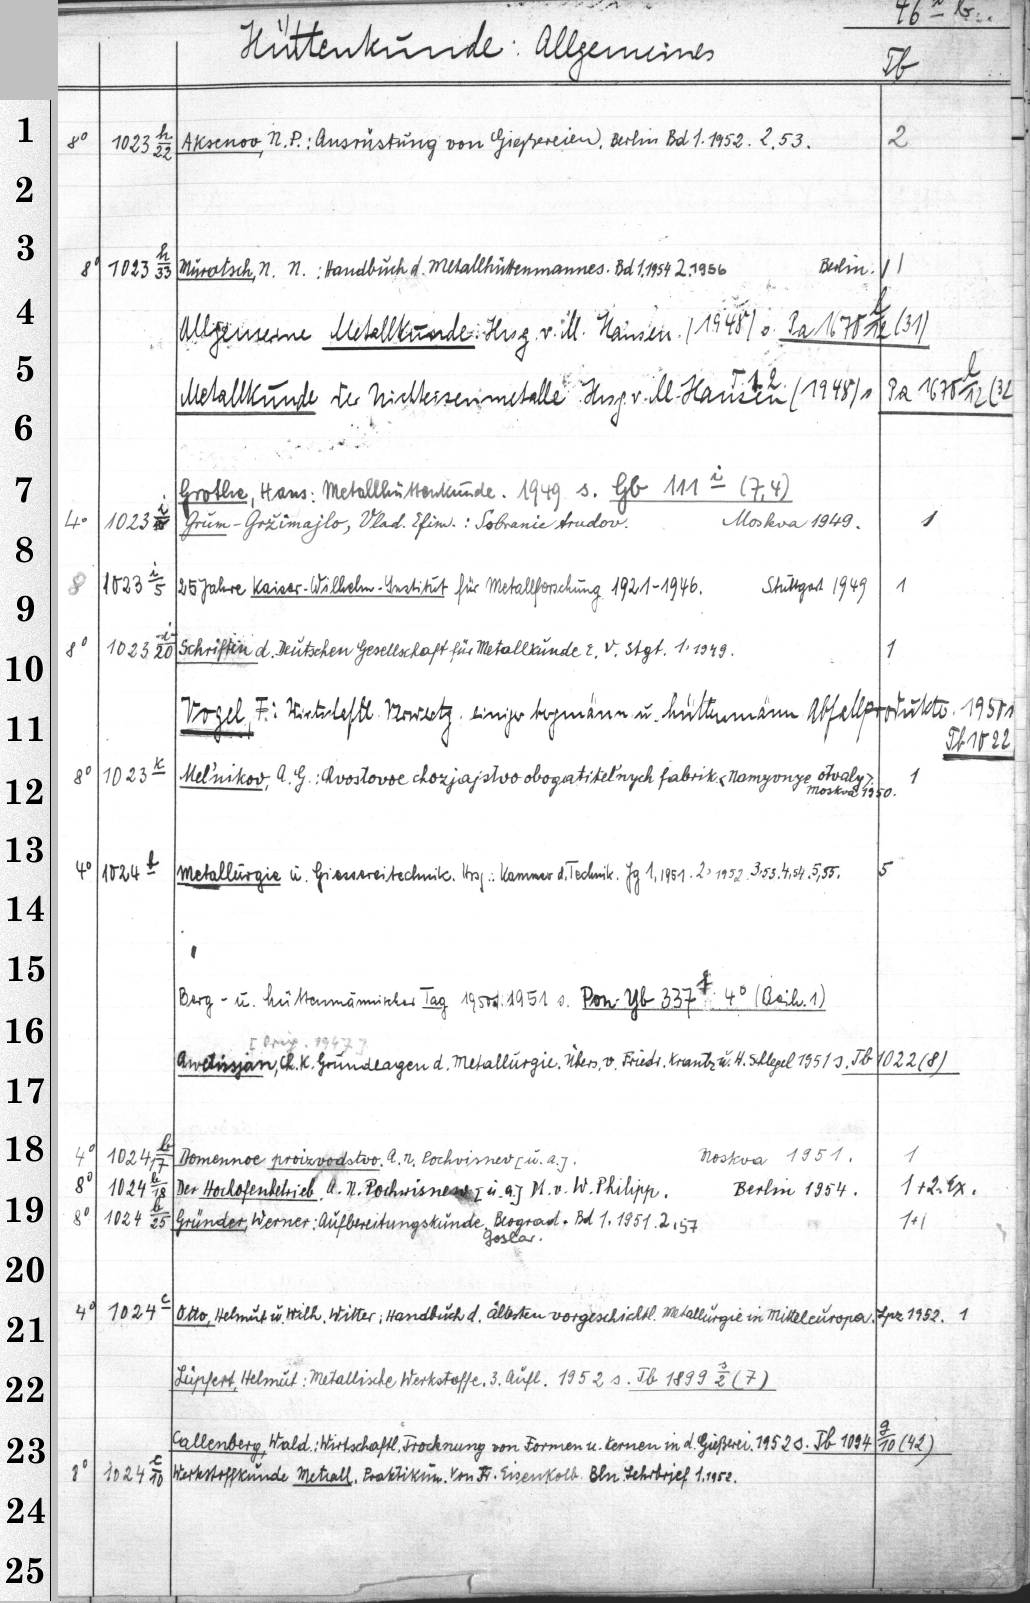 46
Hüttenkunde: Allgemeines
Tb
1
8° 1023 h/22 Aksenov, N.P.: Ausrüstung von Gießereien. Berlin Bd 1. 1952. 2. 53. 2
2
3
8° 1023 h/33 Muratsch, N. N.: Handbuch d. Metallhüttenmannes. Bd 1, 1954 2, 1956 Berlin. 1
4
Allgemeine Metallkunde. Hrsg. v. M. Hansen. (1948) s. Pa 1678 l/12 (31)
5
Metallkunde der Nichteisenmetalle Hrsg. v. M. Hansen T. 1. 2. (1948) s Pa 1678 l/12 (32
6
7
Grothe, Hans: Metallhüttenkunde. 1949 s. Gb 111 i (7,4)
4° 1023 i Grum-Gržimajlo, Vlad. Efim.: Sobranie trudov. Moskva 1949. 1
8
8 1023 i/5 25 Jahre Kaiser-Wilhelm-Institut für Metallforschung 1921-1946. Stuttgart 1949 1
9
8° 1023 i/20 Schriften d. Deutschen Gesellschaft für Metallkunde E. V. Stgt. 1. 1949. 1
10
11
Vogel, F.: Wirtschaftl. Verwertg. einiger bergmänn u. hüttenmänn Abfallprodukte. 1950 s
Tb 1022
12
8° 1023 k Mel'nikov, A. G.: Chvostovoe chozjajstvo obogatitel'nych fabrik <Namyvnye otvaly>. Moskva 1950. 1
13
4° 1024 b Metallurgie u. Giessereitechnik. Hrsg.: Kammer d. Technik. Jg 1, 1951. 2, 1952. 3, 53. 4, 54. 5, 55. 5
14
15
Berg- u. hüttenmännischer Tag 1951 s. Pon Yb 337 4° (Beih. 1)
16
[Orig. 1947]
Awetissjan, Ch. K. Grundlagen d. Metallurgie. Übers. v. Friedr. Krantz u. H. Schlegel 1951 s. Tb 1022 (8)
17
18
4° 1024 b/17 Domennoe proizvodstvo. A. N. Pochvisnev [u. a.]. Moskva 1951. 1
8° 1024 b/18 Der Hochofenbetrieb. A. N. Pochwisnew [u. a.] M. v. W. Philipp. Berlin 1954. 1+2. Ex.
19
8° 1024 b/25 Gründer, Werner: Aufbereitungskunde. Beograd. Bd 1. 1951. 2, 57 1+1
Goslar.
20
4° 1024 c Otto, Helmut u. Wilh. Witter: Handbuch d. ältesten vorgeschichtl. Metallurgie in Mitteleuropa. Lpz 1952. 1
21
22
Lüpfert, Helmut: Metallische Werkstoffe. 3. Aufl. 1952 s. Tb 1899 s/2 (7)
23
Callenberg, Wald.: Wirtschaftl. Trocknung von Formen u. Kernen in d. Gießerei. 1952 s. Tb 1094 a/10 (42)
8° 1024 c/10 Werkstoffkunde Metall. Praktikum. Von Fr. Eisenkolb. Bln. Lehrbrief 1. 1952.
24
25